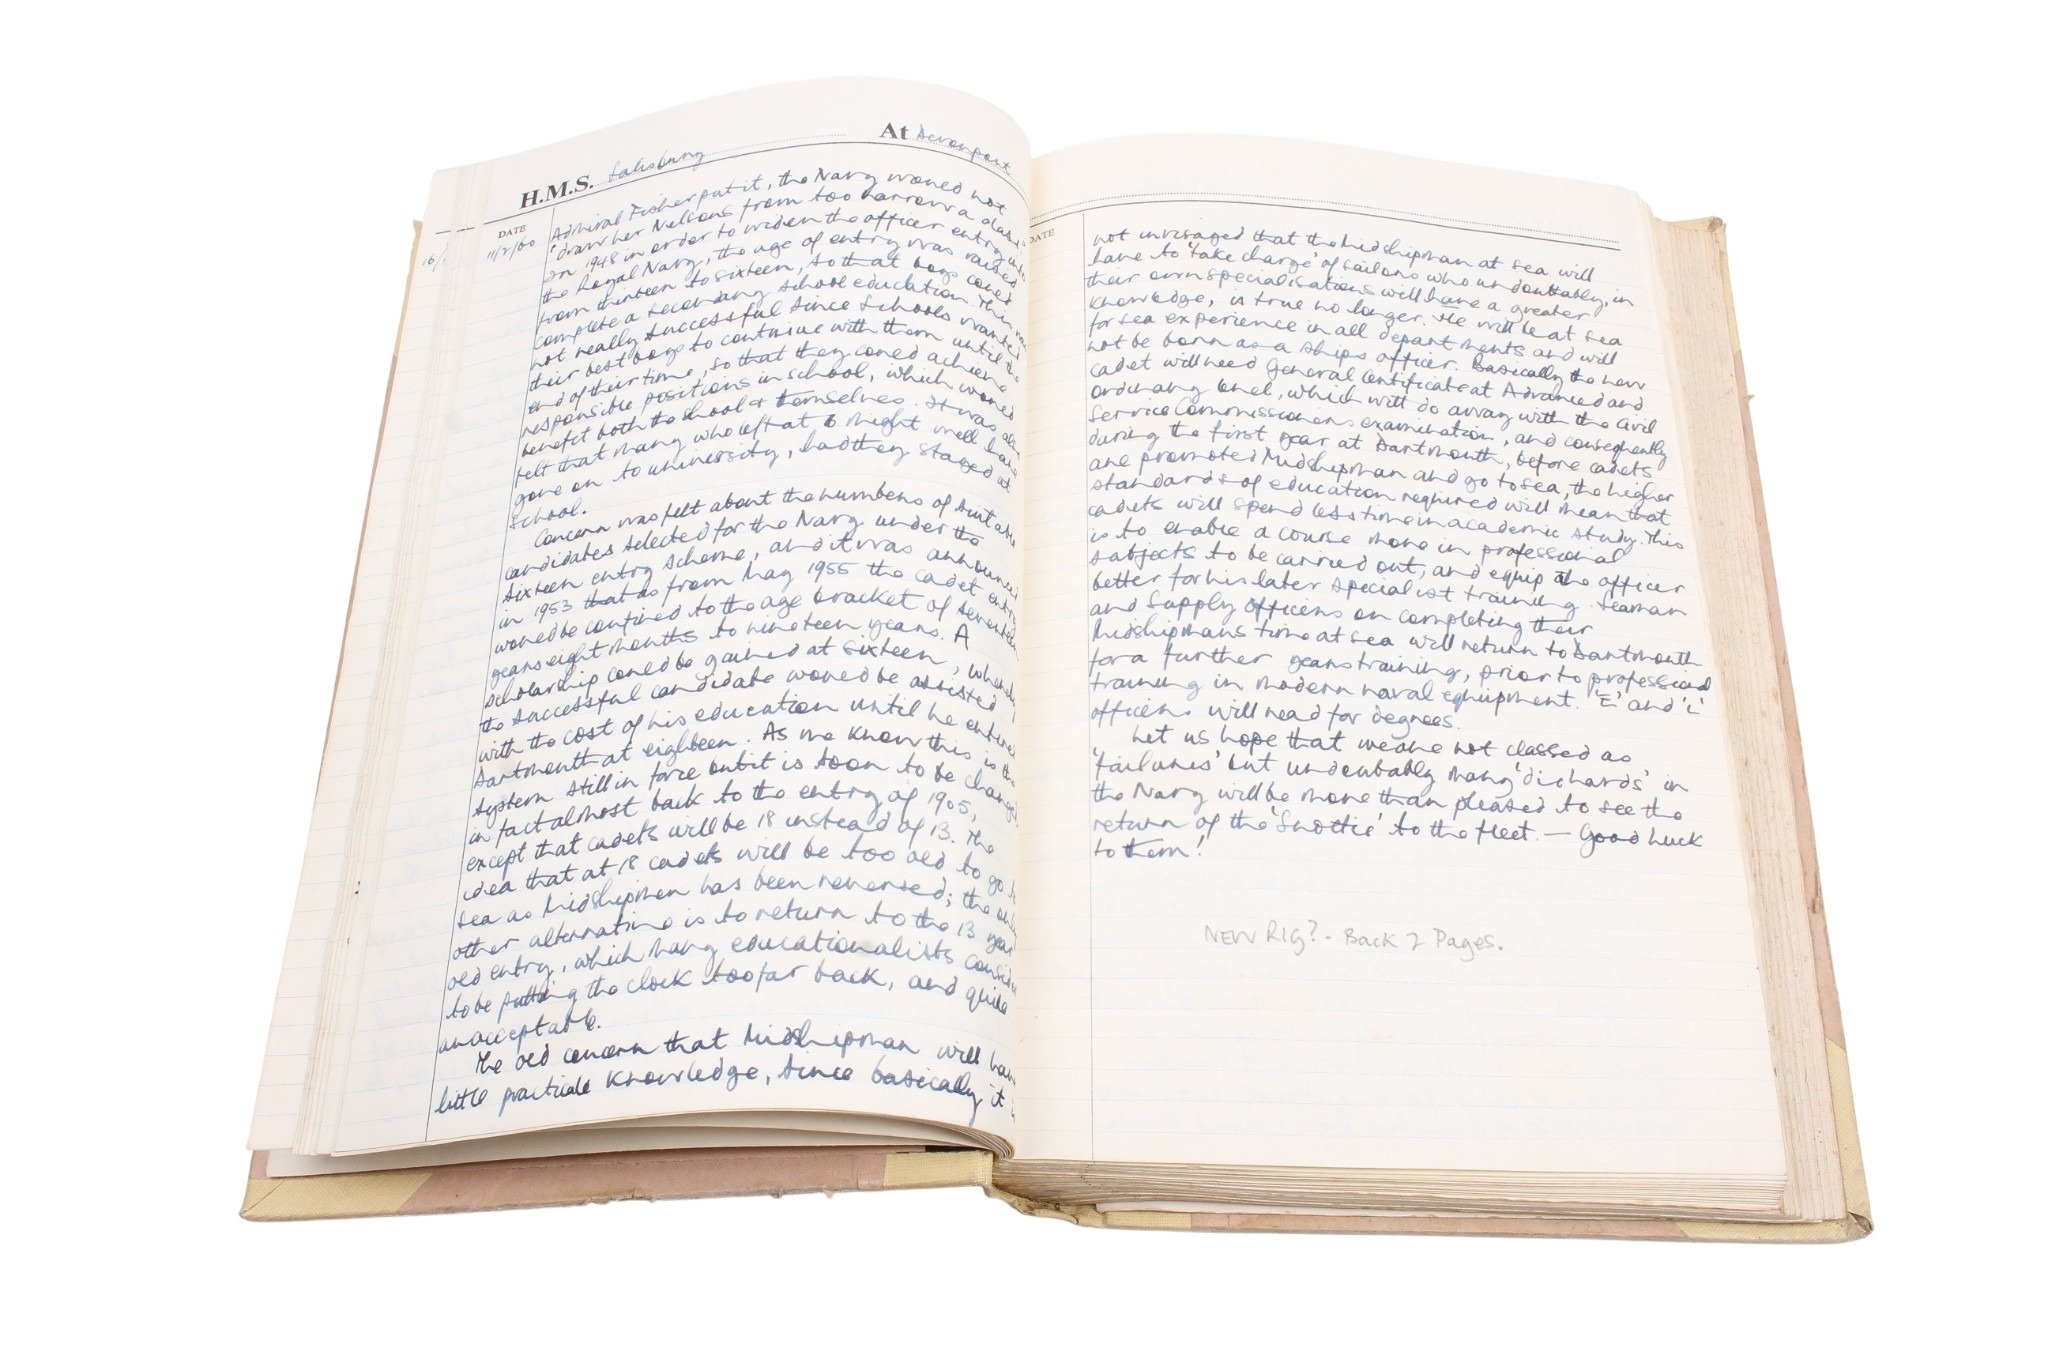 H.M.S. Salisbury At Devonport
DATE
16/
11/2/60
Admiral Fisher put it, the Navy would not
'draw her Nelsons from too narrow a class'.
In 1948 in order to widen the officer entry into
the Royal Navy, the age of entry was raised
from thirteen to sixteen, so that boys could
complete a secondary school education. This was
not really successful since schools wanted
their best boys to continue with them until the
end of their time, so that they could achieve
responsible positions in school, which would
benefit both the school & themselves. It was also
felt that many who left at 16 might well have
gone on to university, had they stayed at
school.
Concern was felt about the numbers of suitable
candidates selected for the Navy under the
sixteen entry scheme, and it was announced
in 1953 that as from May 1955 the cadet entry
would be confined to the age bracket of seventeen
years eight months to nineteen years. A
scholarship could be gained at sixteen, whereby
the successful candidate would be assisted
with the cost of his education until he entered
Dartmouth at eighteen. As we know this is the
system still in force but it is soon to be changed,
in fact almost back to the entry of 1905,
except that cadets will be 18 instead of 13. The
idea that at 18 cadets will be too old to go to
sea as Midshipmen has been reversed; the only
other alternative is to return to the 13 year
old entry, which many educationalists consider
to be putting the clock too far back, and quite
unacceptable.
The old concern that Midshipman will have
little practicale knowledge, since basically it is
DATE
not invisaged that the Midshipman at sea will
have to 'take charge' of sailors who undoubtably, in
their own specialisations will have a greater
knowledge, is true no longer. He will be at sea
for sea experience in all departments and will
not be born as a ships officer. Basically the new
cadet will need General Certificate at Advanced and
ordinary level, which will do away with the Civil
Service Commissioners examination, and consequently
during the first year at Dartmouth, before cadets
are promoted Midshipman and go to sea, the higher
standards of education required will mean that
cadets will spend less time in academic study. This
is to enable a course more in professional
subjects to be carried out, and equip the officer
better for his later specialist training. Seaman
and Supply officers on completing their
Midshipmans time at sea will return to Dartmouth
for a further years training, prior to professional
training in modern naval equipment. 'E' and 'L'
officers will read for degrees.
Let us hope that we are not classed as
'failures' but undoubtably many 'diehards' in
the Navy will be more than pleased to see the
return of the 'Snottie' to the fleet. — Good Luck
to them!
NEW RIG? - Back 2 Pages.